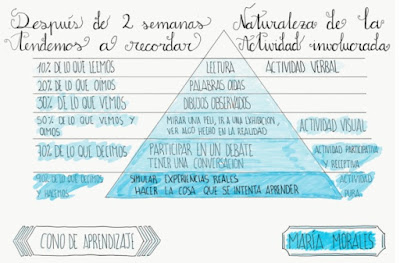 Después de 2 semanas
tendemos a recordar
Naturaleza de la
Actividad involucrada
10% DE LO QUE LEEMOS
LECTURA
ACTIVIDAD VERBAL
20% DE LO QUE OIMOS
PALABRAS OIDAS
30% DE LO QUE VEMOS
DIBUJOS OBSERVADOS
50% DE LO QUE VEMOS Y
OIMOS
MIRAR UNA PELI, IR A UNA EXHIBICION,
VER ALGO HECHO EN LA REALIDAD
ACTIVIDAD VISUAL
70% DE LO QUE DECIMOS
PARTICIPAR EN UN DEBATE
TENER UNA CONVERSACION
ACTIVIDAD PARTICIPATIVA
Y RECEPTIVA
90% DE LO QUE DECIMOS
Y HACEMOS
SIMULAR EXPERIENCIAS REALES
HACER LA COSA QUE SE INTENTA APRENDER
ACTIVIDAD
PURA
CONO DE APRENDIZAJE
MARÍA MORALES